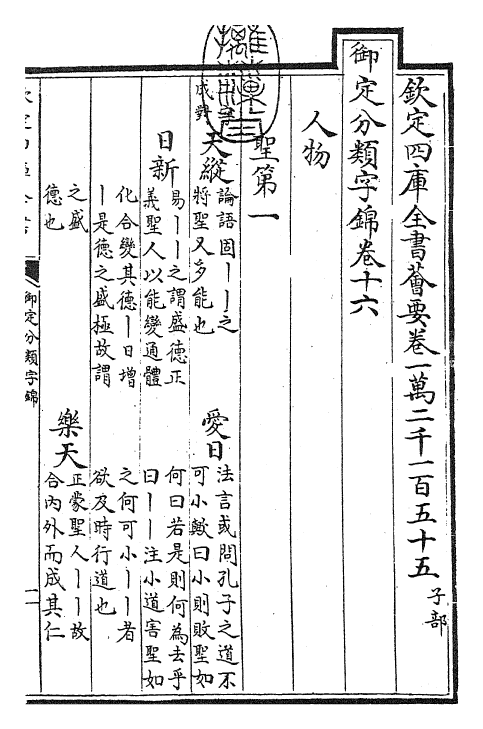 欽定四庫全書薈要卷一萬二千一百五十五 子部
御定分類字錦卷十六
人物
聖第一
成對
天縱
論語固丨丨之
將聖又多能也
愛日
法言或問孔子之道不
可小歟曰小則敗聖如
何曰若是則何為去乎
曰丨丨注小道害聖如
之何可小丨丨者
欲及時行道也
日新
易丨丨之謂盛德正
義聖人以能變通體
化合變其德丨日增
丨是德之盛極故謂
之盛
德也
樂天
正蒙聖人丨丨故
合內外而成其仁
御定分類字錦
一